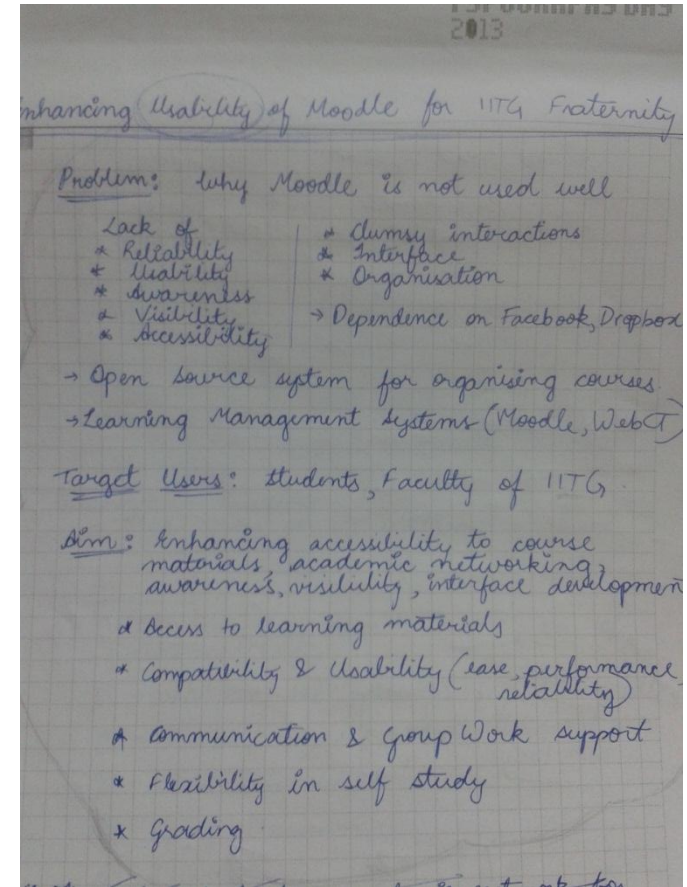 2013
Enhancing Usability of Moodle for IITG Fraternity
Problem: Why Moodle is not used well
Lack of
* Reliability
* Usability
* Awareness
* Visibility
* Accessibility
* Clumsy interactions
* Interface
* Organisation
→ Dependence on Facebook, Dropbox
→ Open source system for organising courses.
→ Learning Management Systems (Moodle, WebCT)
Target Users: Students, Faculty of IITG.
Aim: Enhancing accessibility to course
materials, academic networking,
awareness, visibility, interface development
* Access to learning materials
* Compatibility & Usability (ease, performance,
reliability)
* Communication & Group Work support
* Flexibility in self study
* Grading